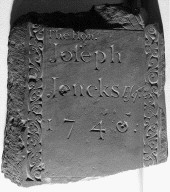 The Hon.
Joseph
Jencks
1740